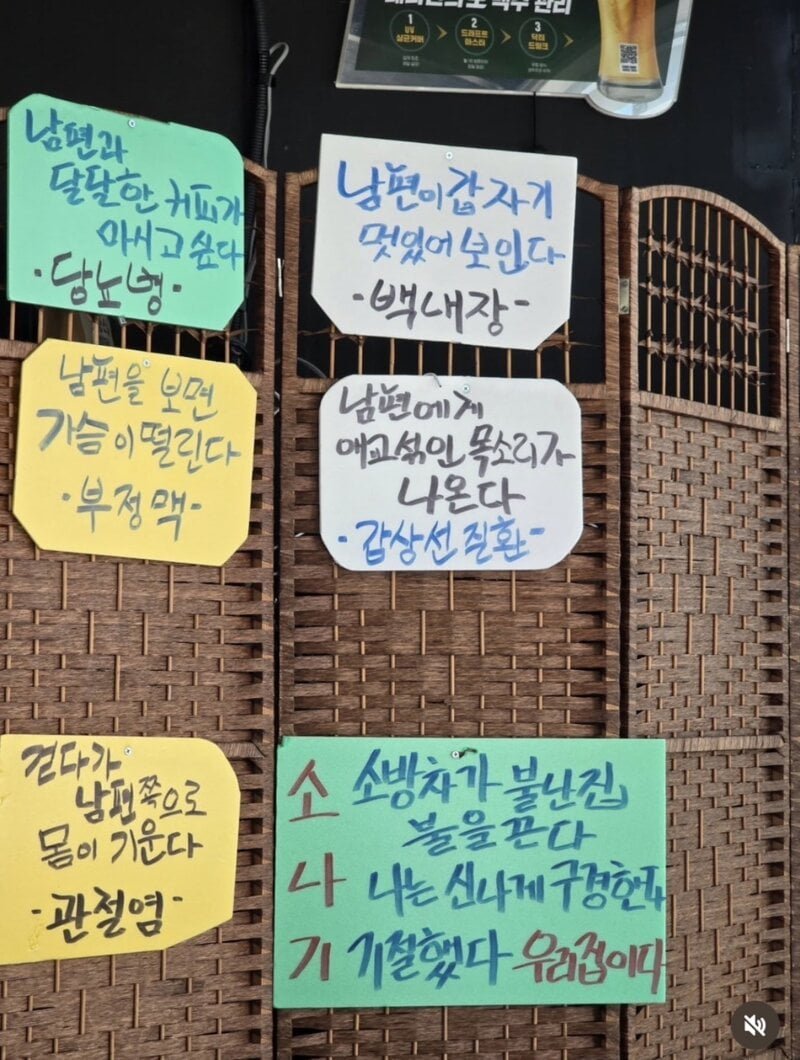 맥주 관리
1
UV
살균커버
2
드래프트
마스터
3
닥터
드링크
남편과
달달한 커피가
마시고 싶다
·당뇨병·
남편이 갑자기
멋있어 보인다
-백내장-
남편을 보면
가슴이 떨린다
·부정맥-
남편에게
애교섞인 목소리가
나온다
·갑상선 질환-
걷다가
남편쪽으로
몸이 기운다
-관절염-
소 소방차가 불난집
불을 끈다
나 나는 신나게 구경한다
기 기절했다 우리집이다